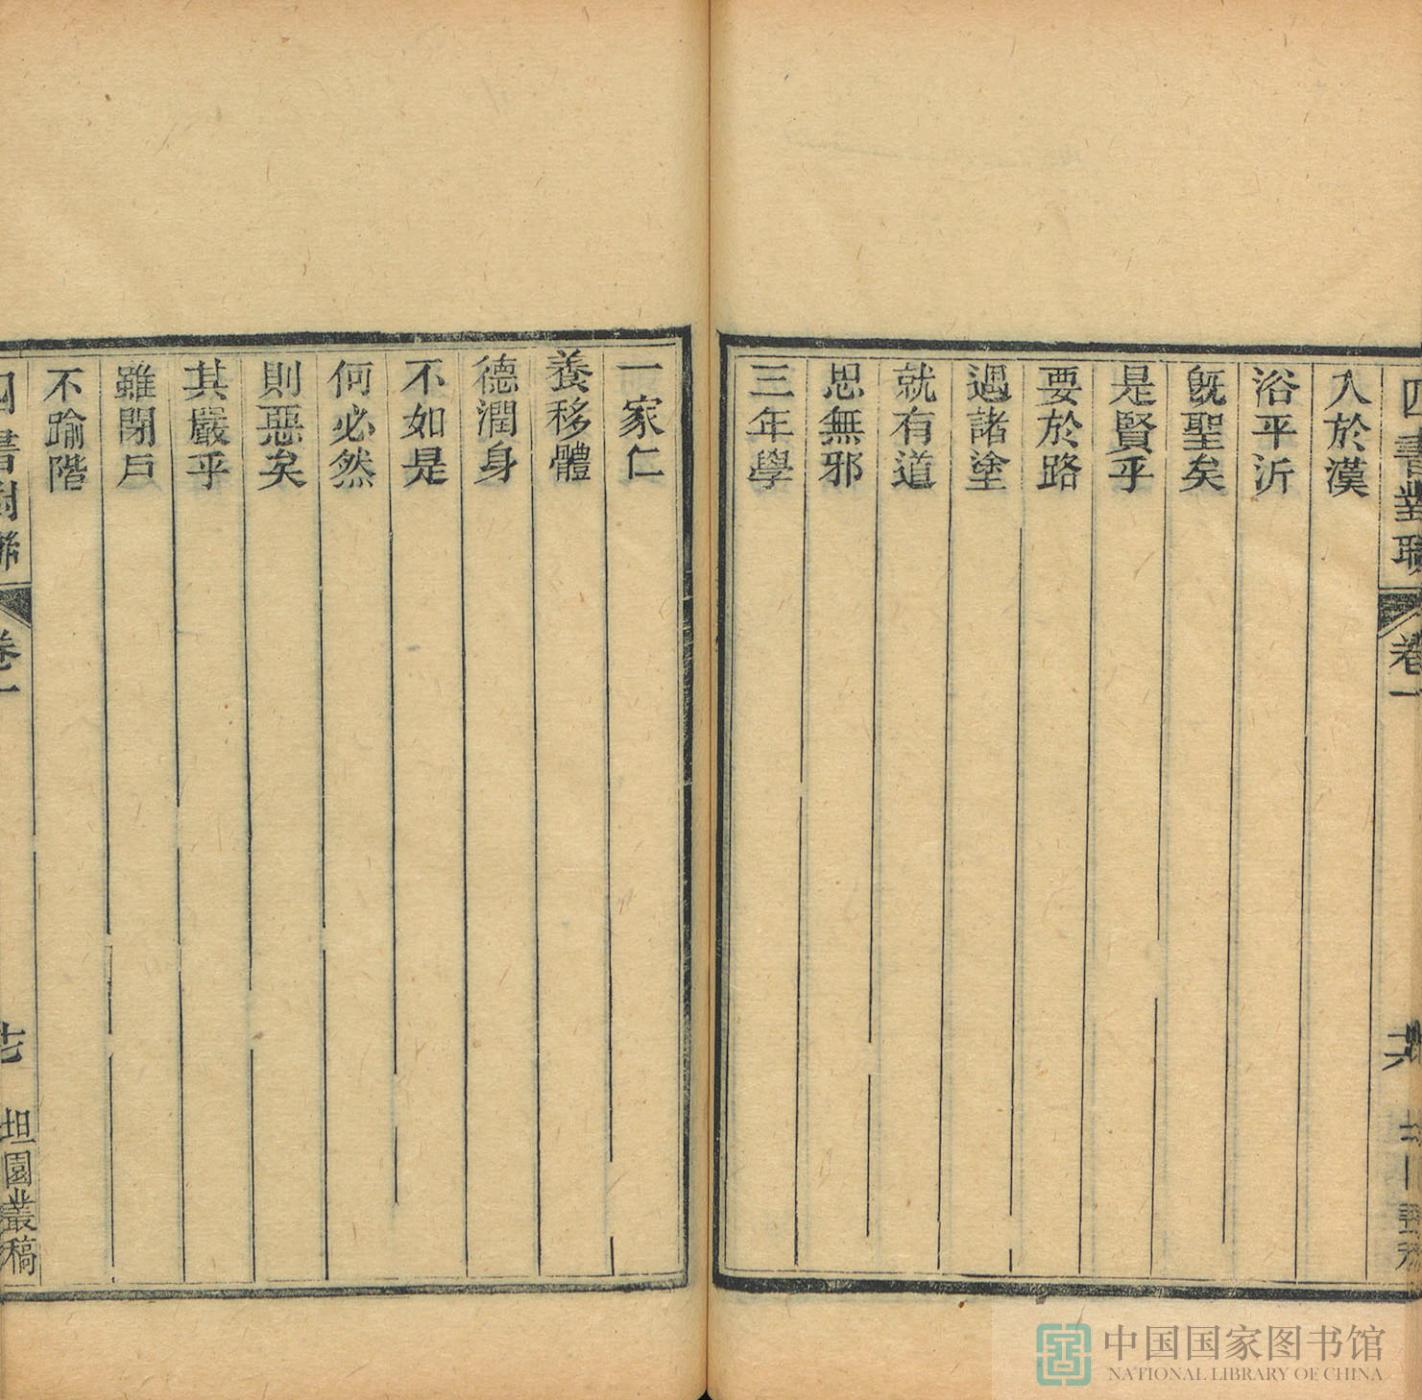 四書對聯
卷一
入於漢
浴乎沂
旣聖矣
是賢乎
要於路
遇諸塗
就有道
思無邪
三年學
一家仁
養移體
德潤身
不如是
何必然
則惡矣
其嚴乎
雖閉戶
不踰階
四書對聯
卷一
坦園叢稿
中国国家图书馆
NATIONAL LIBRARY OF CHINA